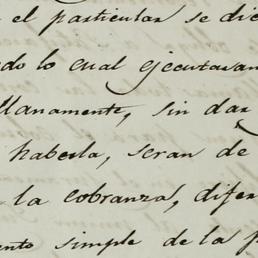 el particular se dic
do lo cual ejecutaran
llanamente, sin dar
haberla, seran de
la cobranza, difer
ento simple de la p